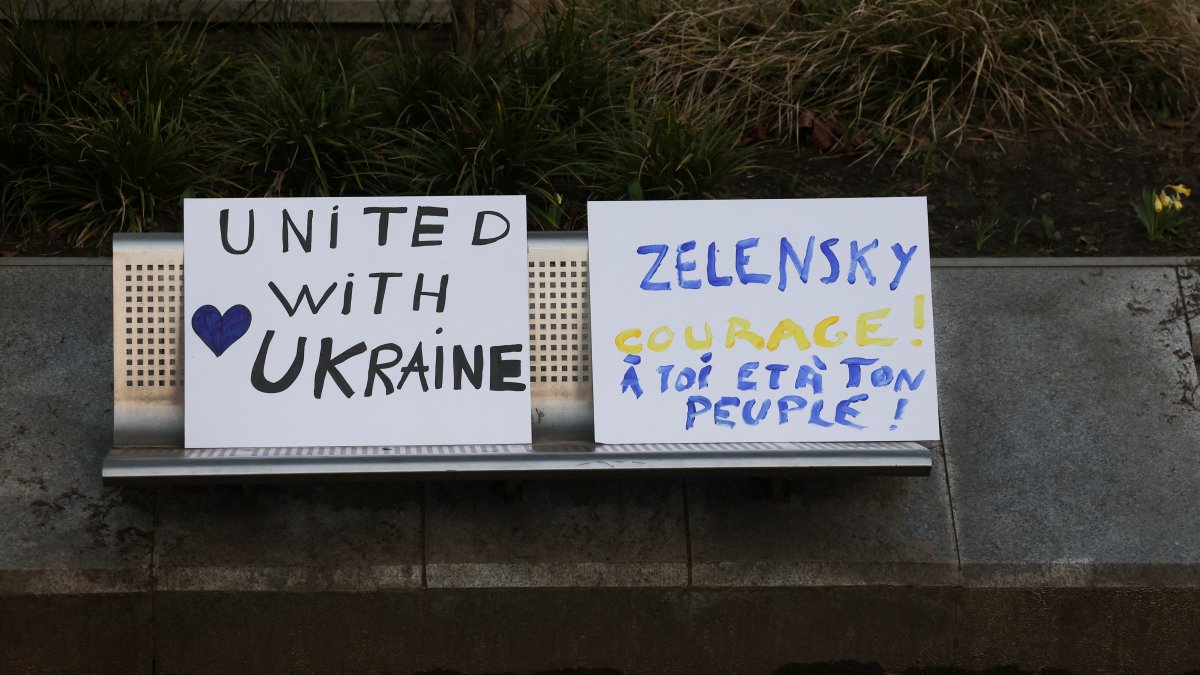 UNiTED
WiTH
UKRAiNE
ZELENSKY
COURAGE!
À TOi ET À TON
PEUPLE !